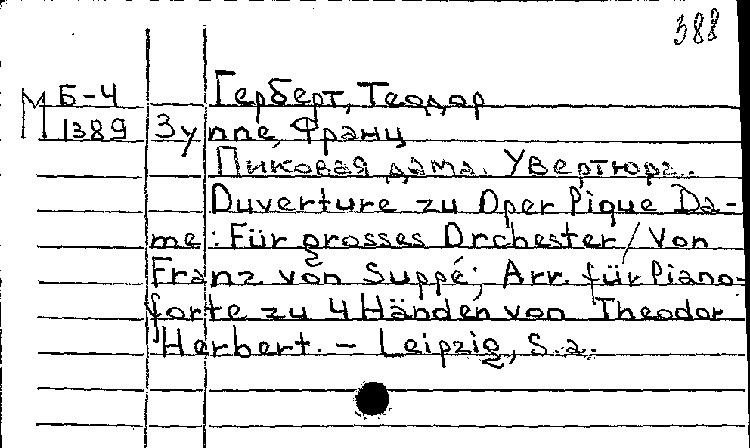 388
М Б-4 Герберт, Теодор
1389 Зуппе, Франц
Пиковая дама. Увертюра.
Ouverture zu Oper Pique Da-
me: Für grosses Orchester / Von
Franz von Suppé; Arr. für Piano-
forte zu 4 Händen von Theodor
Herbert. – Leipzig, S.a.